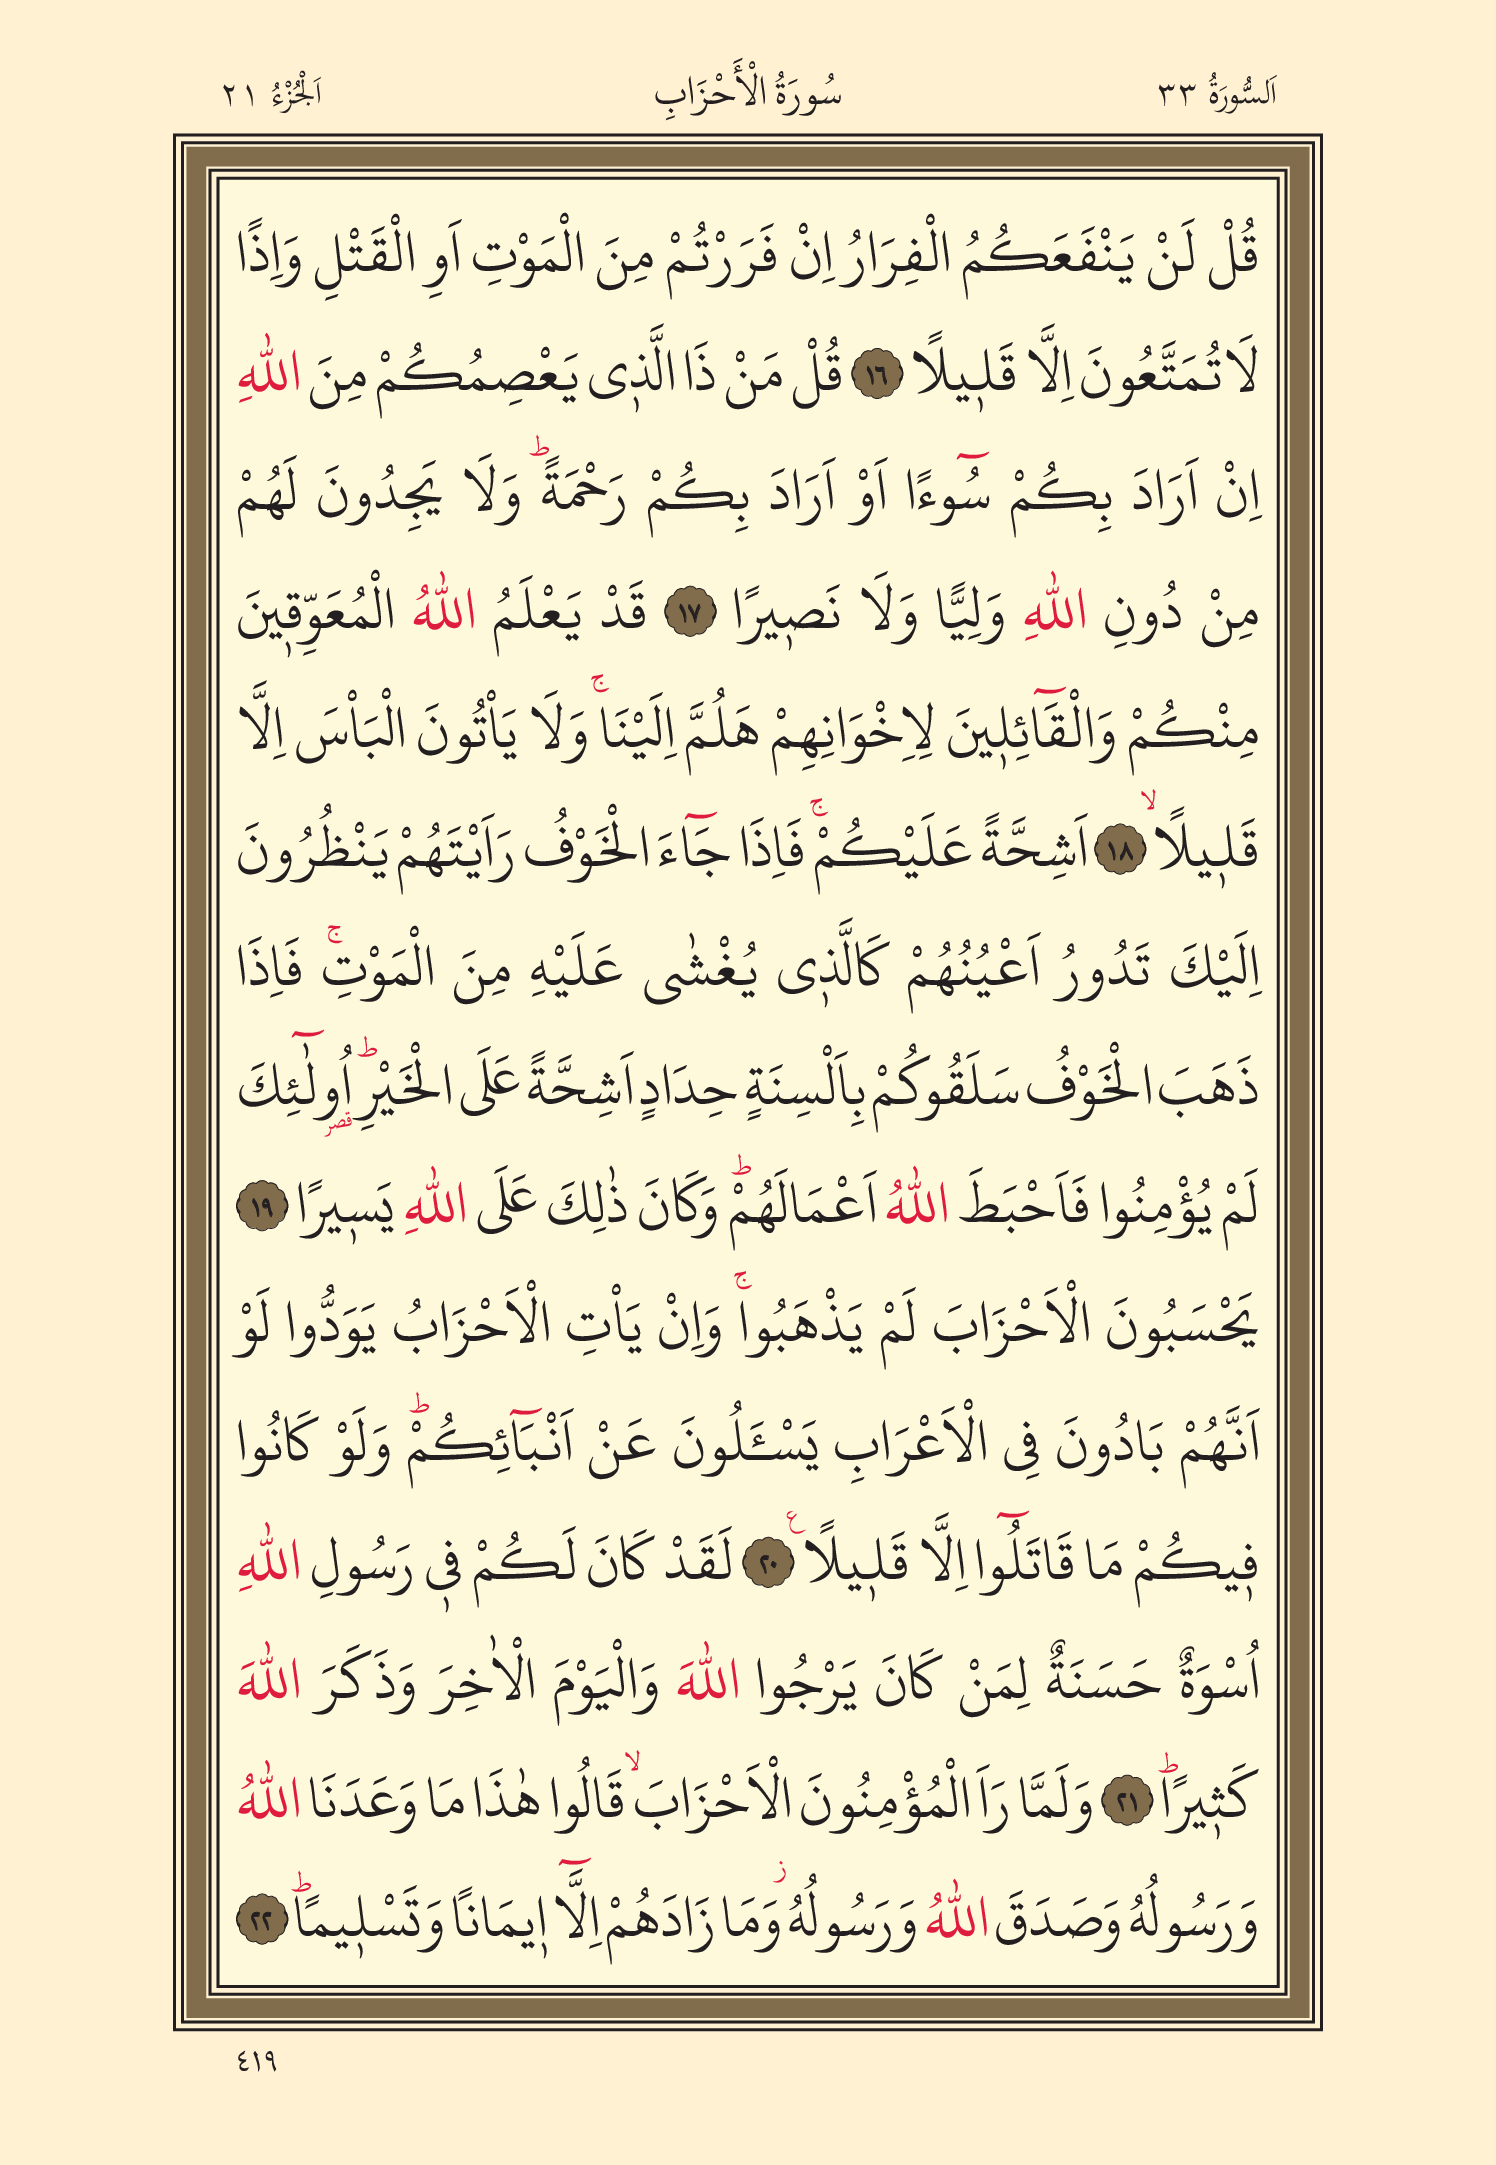 اَلسُّورَةُ ٣٣ سُورَةُ الْأَحْزَابِ اَلْجُزْءُ ٢١
قُلْ لَنْ يَنْفَعَكُمُ الْفِرَارُ اِنْ فَرَرْتُمْ مِنَ الْمَوْتِ اَوِ الْقَتْلِ وَاِذًا
لَا تُمَتَّعُونَ اِلَّا قَل۪يلًا ١٦ قُلْ مَنْ ذَا الَّذ۪ى يَعْصِمُكُمْ مِنَ اللّٰهِ
اِنْ اَرَادَ بِكُمْ سُٓوءًا اَوْ اَرَادَ بِكُمْ رَحْمَةًۜ وَلَا يَجِدُونَ لَهُمْ
مِنْ دُونِ اللّٰهِ وَلِيًّا وَلَا نَص۪يرًا ١٧ قَدْ يَعْلَمُ اللّٰهُ الْمُعَوِّق۪ينَ
مِنْكُمْ وَالْقَٓائِل۪ينَ لِاِخْوَانِهِمْ هَلُمَّ اِلَيْنَاۚ وَلَا يَاْتُونَ الْبَاْسَ اِلَّا
قَل۪يلًاۙ ١٨ اَشِحَّةً عَلَيْكُمْۚ فَاِذَا جَٓاءَ الْخَوْفُ رَاَيْتَهُمْ يَنْظُرُونَ
اِلَيْكَ تَدُورُ اَعْيُنُهُمْ كَالَّذ۪ى يُغْشٰى عَلَيْهِ مِنَ الْمَوْتِۚ فَاِذَا
ذَهَبَ الْخَوْفُ سَلَقُوكُمْ بِاَلْسِنَةٍ حِدَادٍ اَشِحَّةً عَلَى الْخَيْرِۜ اُو۬لٰٓئِكَ
لَمْ يُؤْمِنُوا فَاَحْبَطَ اللّٰهُ اَعْمَالَهُمْۜ وَكَانَ ذٰلِكَ عَلَى اللّٰهِ يَس۪يرًا ١٩
يَحْسَبُونَ الْاَحْزَابَ لَمْ يَذْهَبُواۚ وَاِنْ يَاْتِ الْاَحْزَابُ يَوَدُّوا لَوْ
اَنَّهُمْ بَادُونَ فِى الْاَعْرَابِ يَسْـَٔلُونَ عَنْ اَنْبَٓائِكُمْۜ وَلَوْ كَانُوا
ف۪يكُمْ مَا قَاتَلُٓوا اِلَّا قَل۪يلًا ࣖ ٢٠ لَقَدْ كَانَ لَكُمْ ف۪ى رَسُولِ اللّٰهِ
اُسْوَةٌ حَسَنَةٌ لِمَنْ كَانَ يَرْجُوا اللّٰهَ وَالْيَوْمَ الْاٰخِرَ وَذَكَرَ اللّٰهَ
كَث۪يرًاۜ ٢١ وَلَمَّا رَاَ الْمُؤْمِنُونَ الْاَحْزَابَۙ قَالُوا هٰذَا مَا وَعَدَنَا اللّٰهُ
وَرَسُولُهُ وَصَدَقَ اللّٰهُ وَرَسُولُهُؗ وَمَا زَادَهُمْ اِلَّٓا ا۪يمَانًا وَتَسْل۪يمًاۜ ٢٢
٤١٩